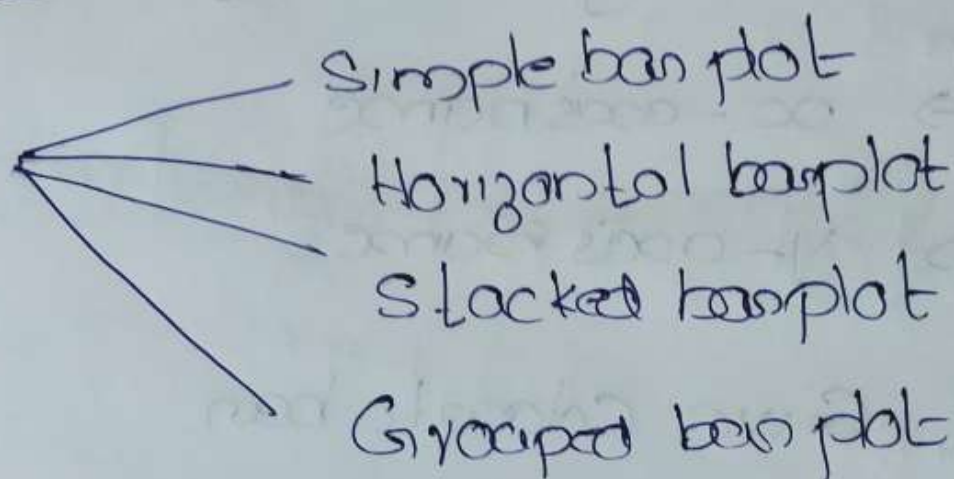 Simple bar plot
Horizontal barplot
Stacked barplot
Grouped bar plot